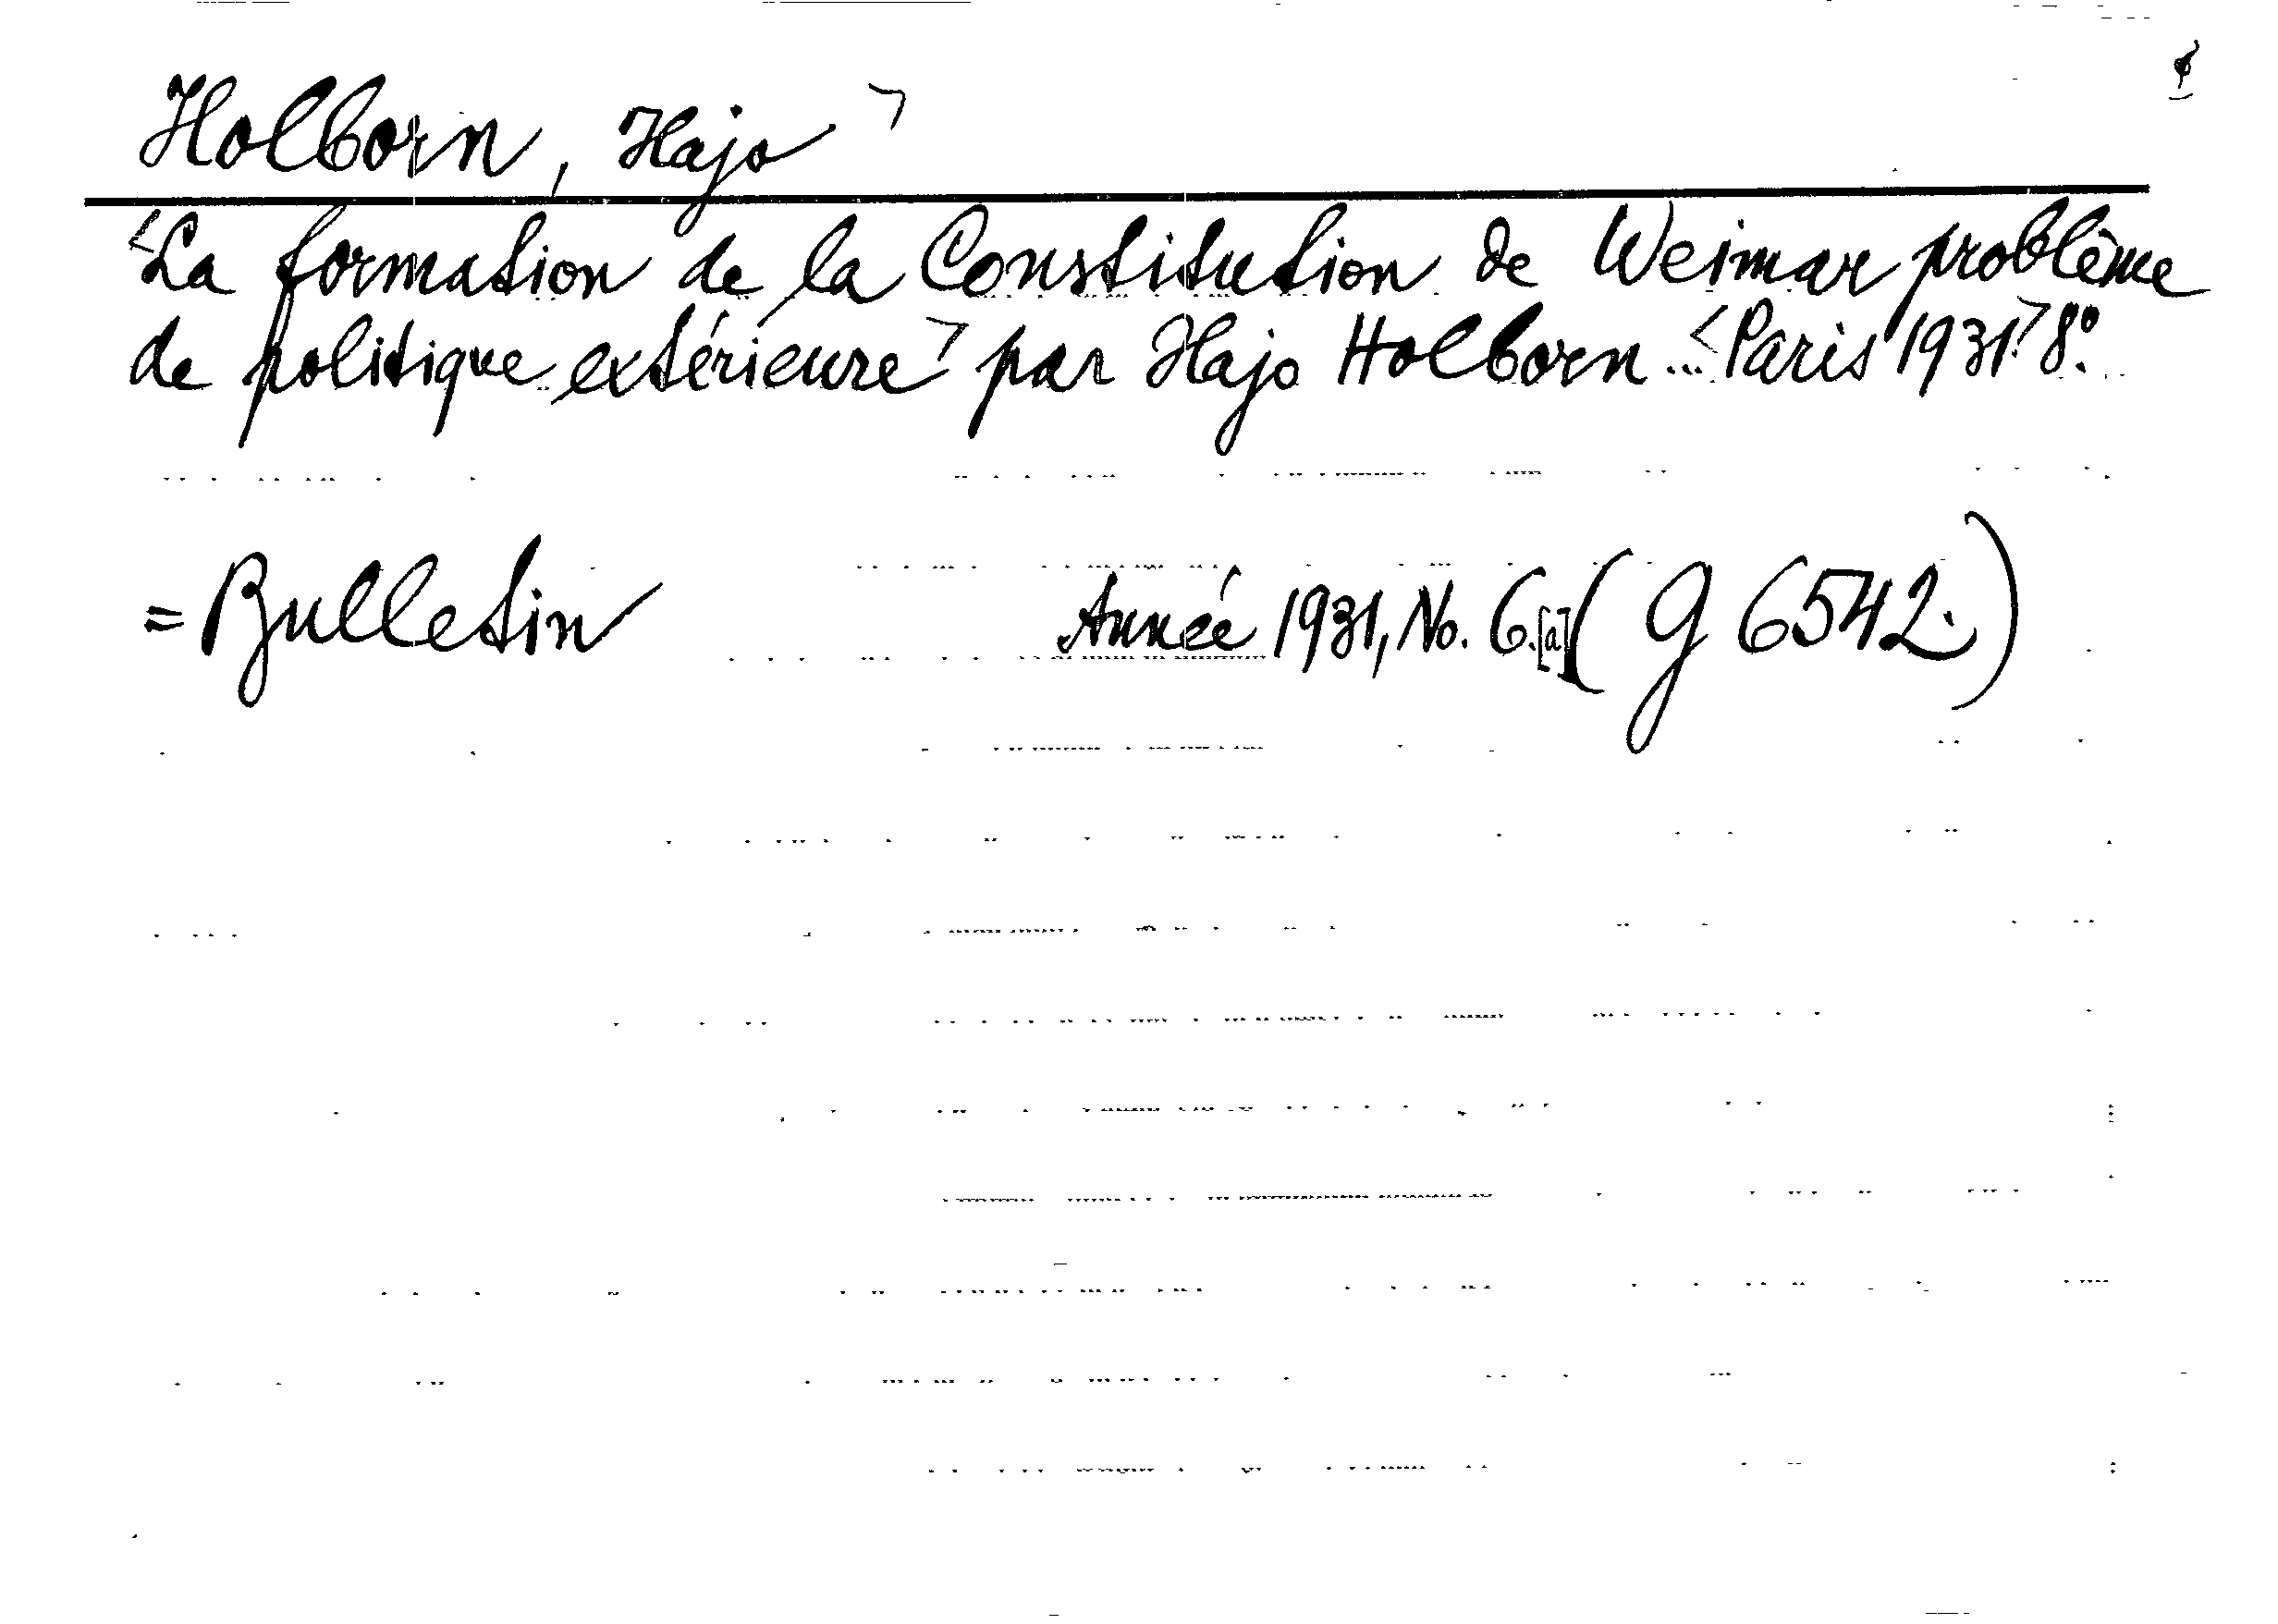 Holborn, Hajo
La formation de la Constitution de Weimar problème
de politique extérieure par Hajo Holborn ... Paris 1931. 8°.
= Bulletin Année 1931, No. 6. [a] (G 6542.)